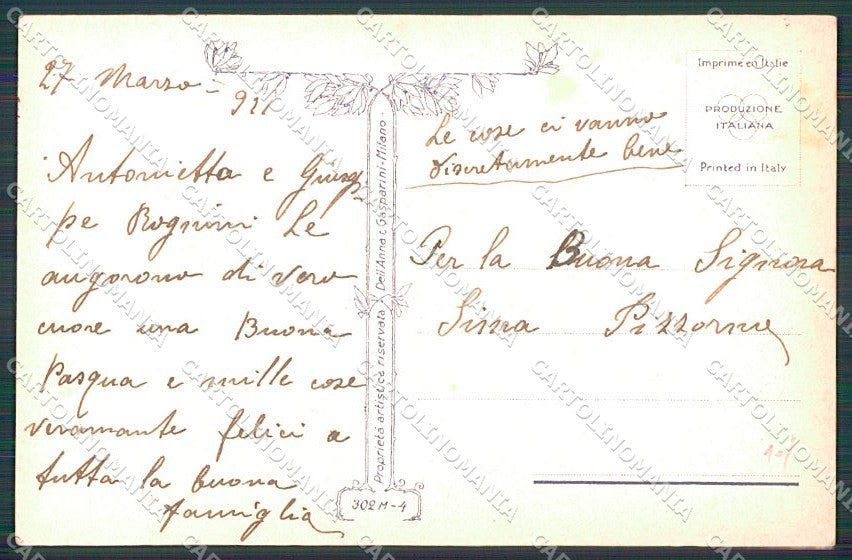 27 Marzo =
Antonietta e Giusep
pe Le
augorono di vero
cuore una Buona
Pasqua e mille cose
veramante felici a
tutta la buona
famiglia
Le cose ci vanno
discretamente bene
Per la Buona Signora
Imprimé en Italie
PRODUZIONE
ITALIANA
Printed in Italy
Proprietà artistica riservata Dell'Anna e Gasparini - Milano
302 M - 4
CARTOLINOMANIA